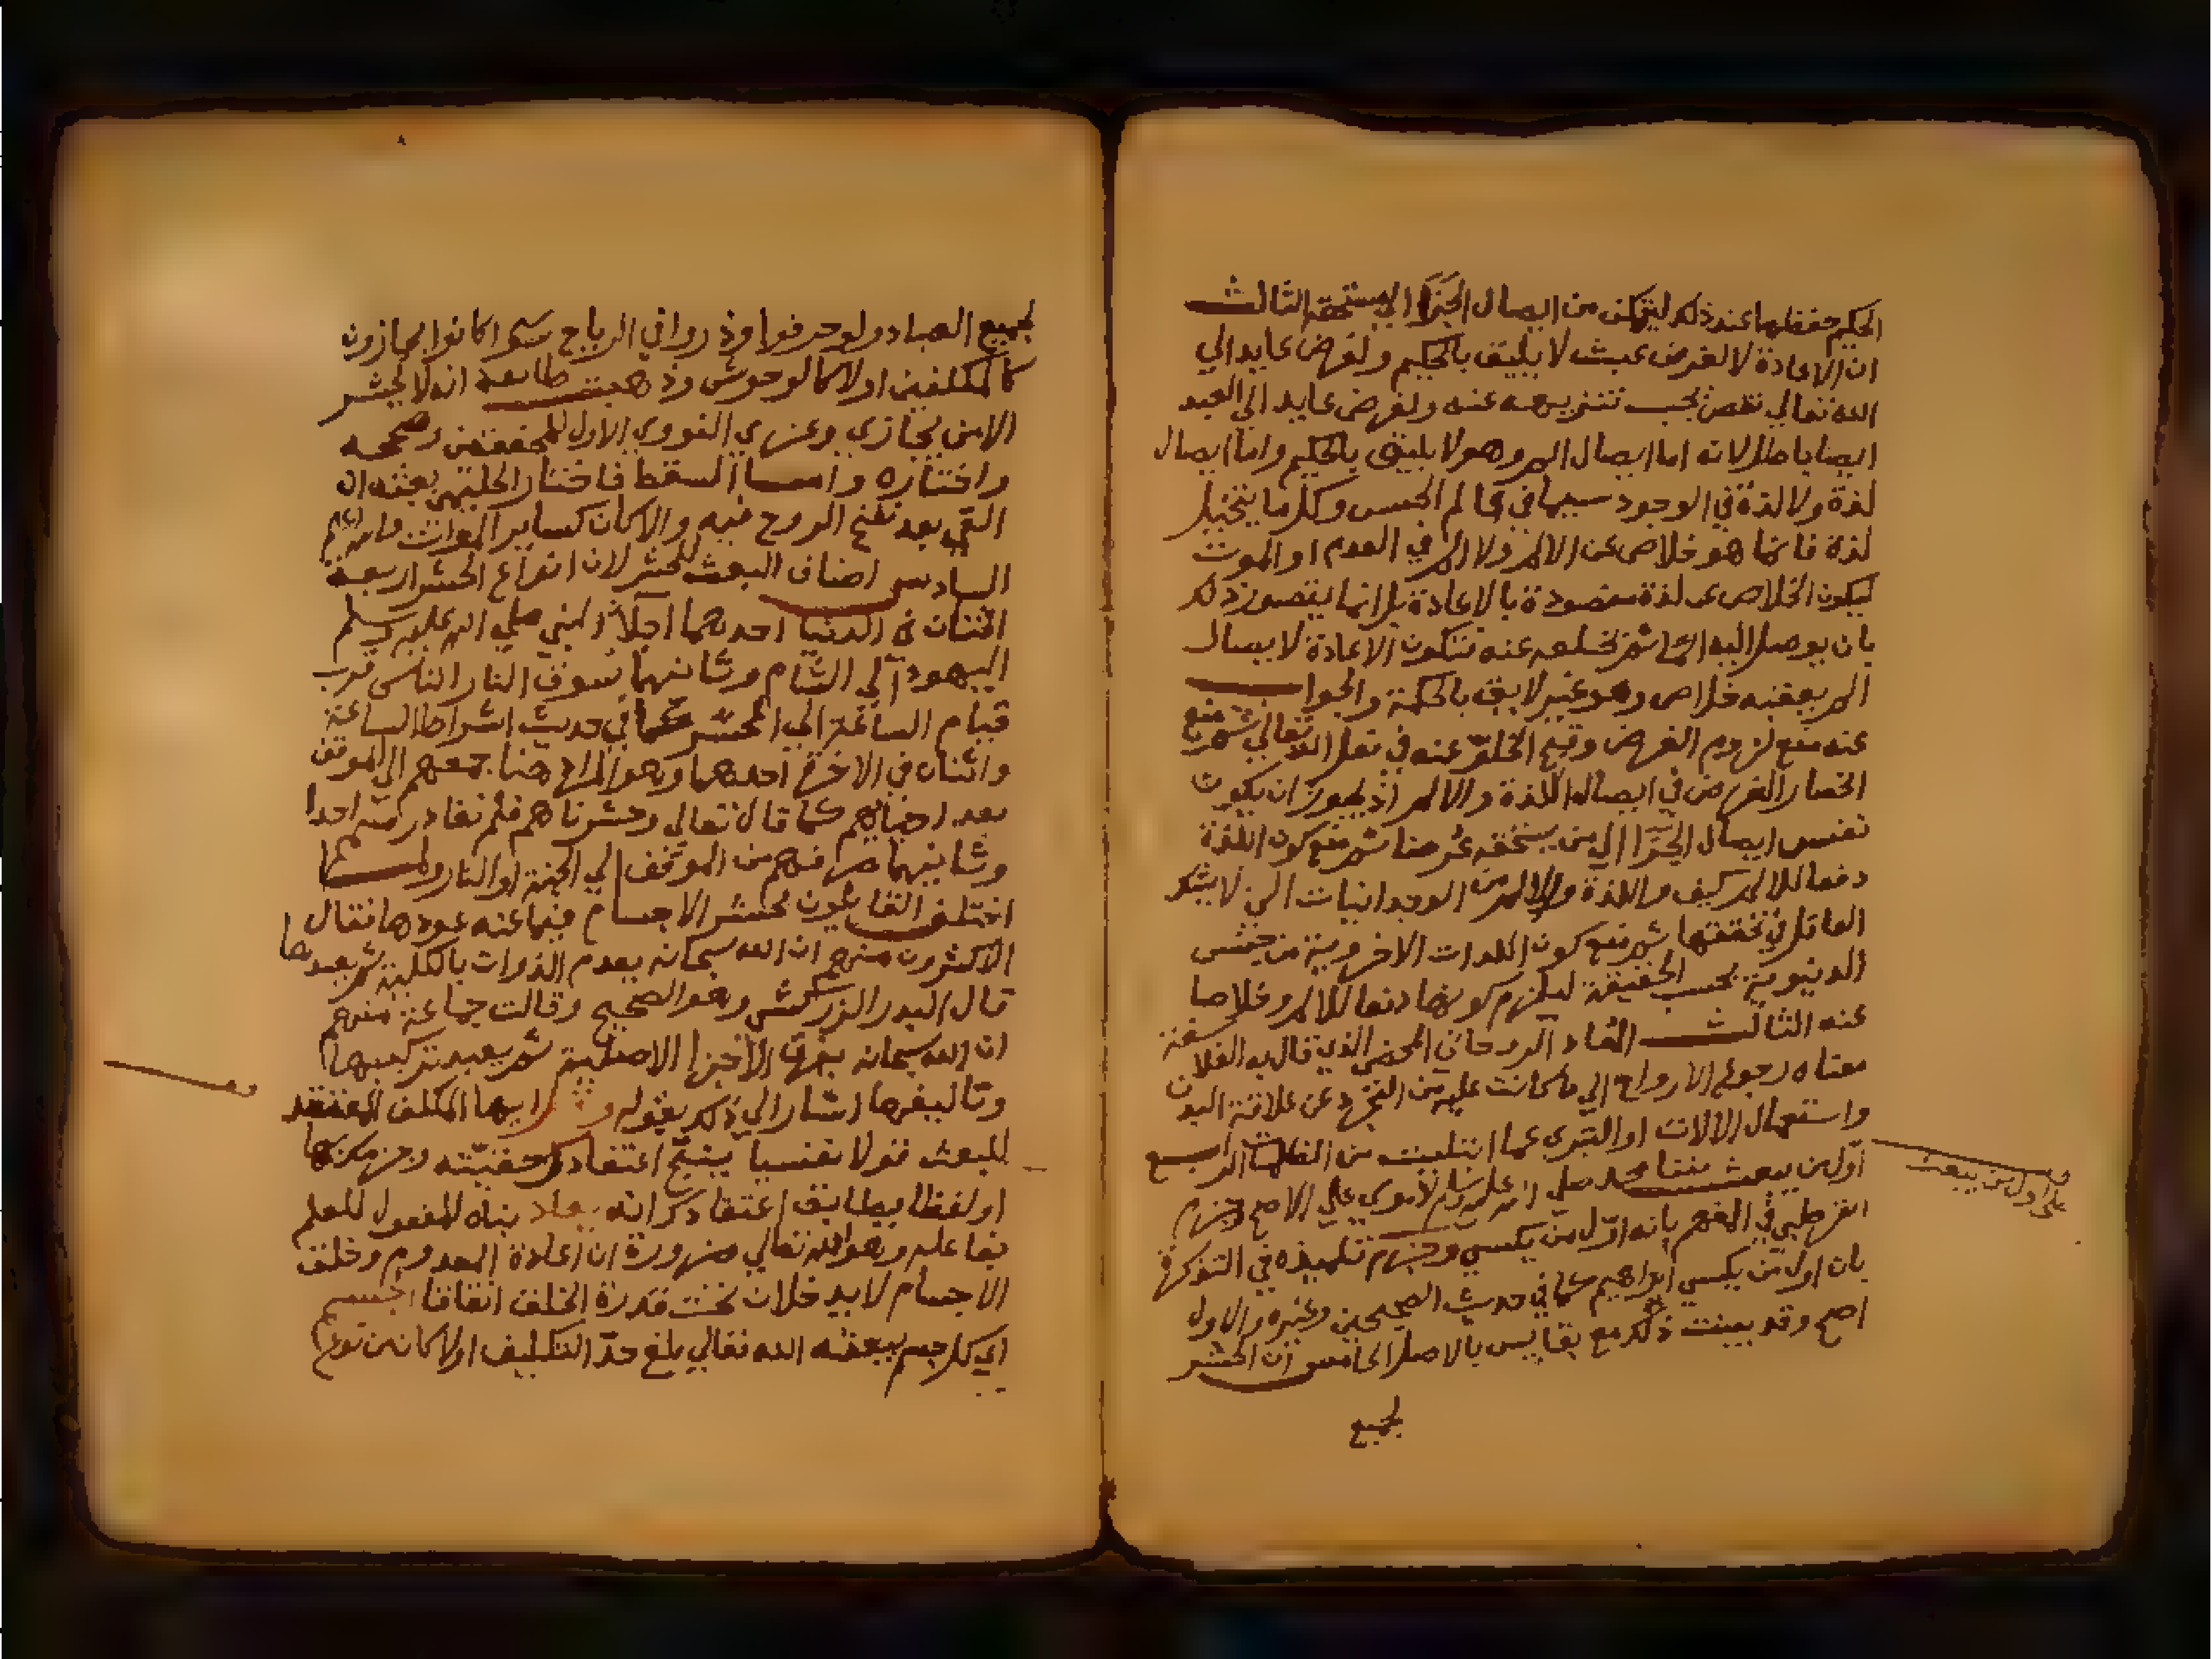 الحكيم حفظها عند ذلك ليتمكن من ايصال الجزا الي مستحقه الثالث
ان الاعادة لا لغرض عبث لا يليق بالحكيم ولغرض عايد الي
الله تعالي نقص يجب تنزيهه عنه ولغرض عايد الي العبد
ايضا باطل لانه اما ايصال الم وهو لا يليق بالحكيم واما ايصال
لذة ولا لذة في الوجود سيما في عالم الحس وكل ما يتخيل
لذة فانما هو خلاص عن الالم ولا الم في العدم او الموت
ليكون الخلاص عنه لذة مقصودة بالاعادة بل انما يتصور ذلك
بان يوصل اليه الما ثم يخلصه عنه فتكون الاعادة لايصال
الم يعقبه خلاص وهو غير لايق بالحكمة والجواب
عنه منع لزوم الغرض وقبح الخلو عنه في فعل الله تعالي ثم منع
انحصار الغرض في ايصال اللذة والالم اذ يجوز ان يكون
نفس ايصال الجزا الي من يستحقه غرضا ثم منع كون اللذة
دفعا للالم كيف واللذة والالم من الوجدانيات التي لا يشك
العاقل في تحققها ثم منع كون اللذات الاخروية من جنس
الدنيوية بحسب الحقيقة ليلزم كونها دفعا للالم وخلاصا
عنه الثالث المعاد الروحاني المحض الذي قال به الفلاسفة
معناه رجوع الارواح الي ما كانت عليه من التجرد عن علاقة البدن
واستعمال الالات او التبري عما ابتليت من الرابع
اول من يبعث نبينا محمد صلي الله عليه وسلم علي الاصح وجزم
القرطبي في المفهم بانه اول من يكسي وجزم تلميذه في التذكرة
بان اول من يكسي ابراهيم كما في حديث الصحيحين وغيره والاول
اصح وقد بينت ذلك مع بقايس بالاصل الخامس ان الحشر
لجميع
علي اول من يبعث
لجميع العباد ولو حرقوا وذروا في الرياح سوا كانوا يجازون
كالمكلفين او لا كالوحوش وذهبت طايفة انه لا يحشر
الا من يجازي وعزي النووي الاول للمحققين وصححه
واختاره واما السقط فاختار الحليمي بعثه ان
القي بعد نفخ الروح فيه والا كان كساير الموات
السادس اضاف البعث للحشر لان انواع الحشر اربعة
اثنان في الدنيا احدهما اجلا النبي صلي الله عليه وسلم
اليهود الي الشام وثانيهما سوق النار الناس قرب
قيام الساعة الي المحشر كما في حديث اشراط الساعة
واثنان في الاخرة احدهما وهو المراد هنا جمعهم الي الموقف
بعد احيايهم كما قال تعالي وحشرناهم فلم نغادر منهم احدا
وثانيهما صرفهم من الموقف الي الجنة او النار ولما
اختلف القايلون بحشر الاجسام فيما عنه عودها فقال
الاكثرون منهم ان الله سبحانه يعدم الذوات بالكلية ثم يعيدها
قال البدر الزركشي وهو الصحيح وقالت جماعة منهم
ان الله سبحانه يفرق الاجزا الاصلية ثم يعيد تركيبها
وتاليفها اشار الي ذلك بقوله ايها المكلف المعتقد
للبعث قولا نفسيا ينتج اعتقادك حقيته وجزمك بها
او لفظا يطابق اعتقادك انه يعاد بناه للمفعول للعلم
بفاعله وهو الله تعالي ضرورة ان اعادة المعدوم وخلق
الاجسام لا يدخلان تحت قدرة الخلق اتفاقا الجسم
اي كل جسم يبعثه الله تعالي بلغ حد التكليف او لا كان من نوع